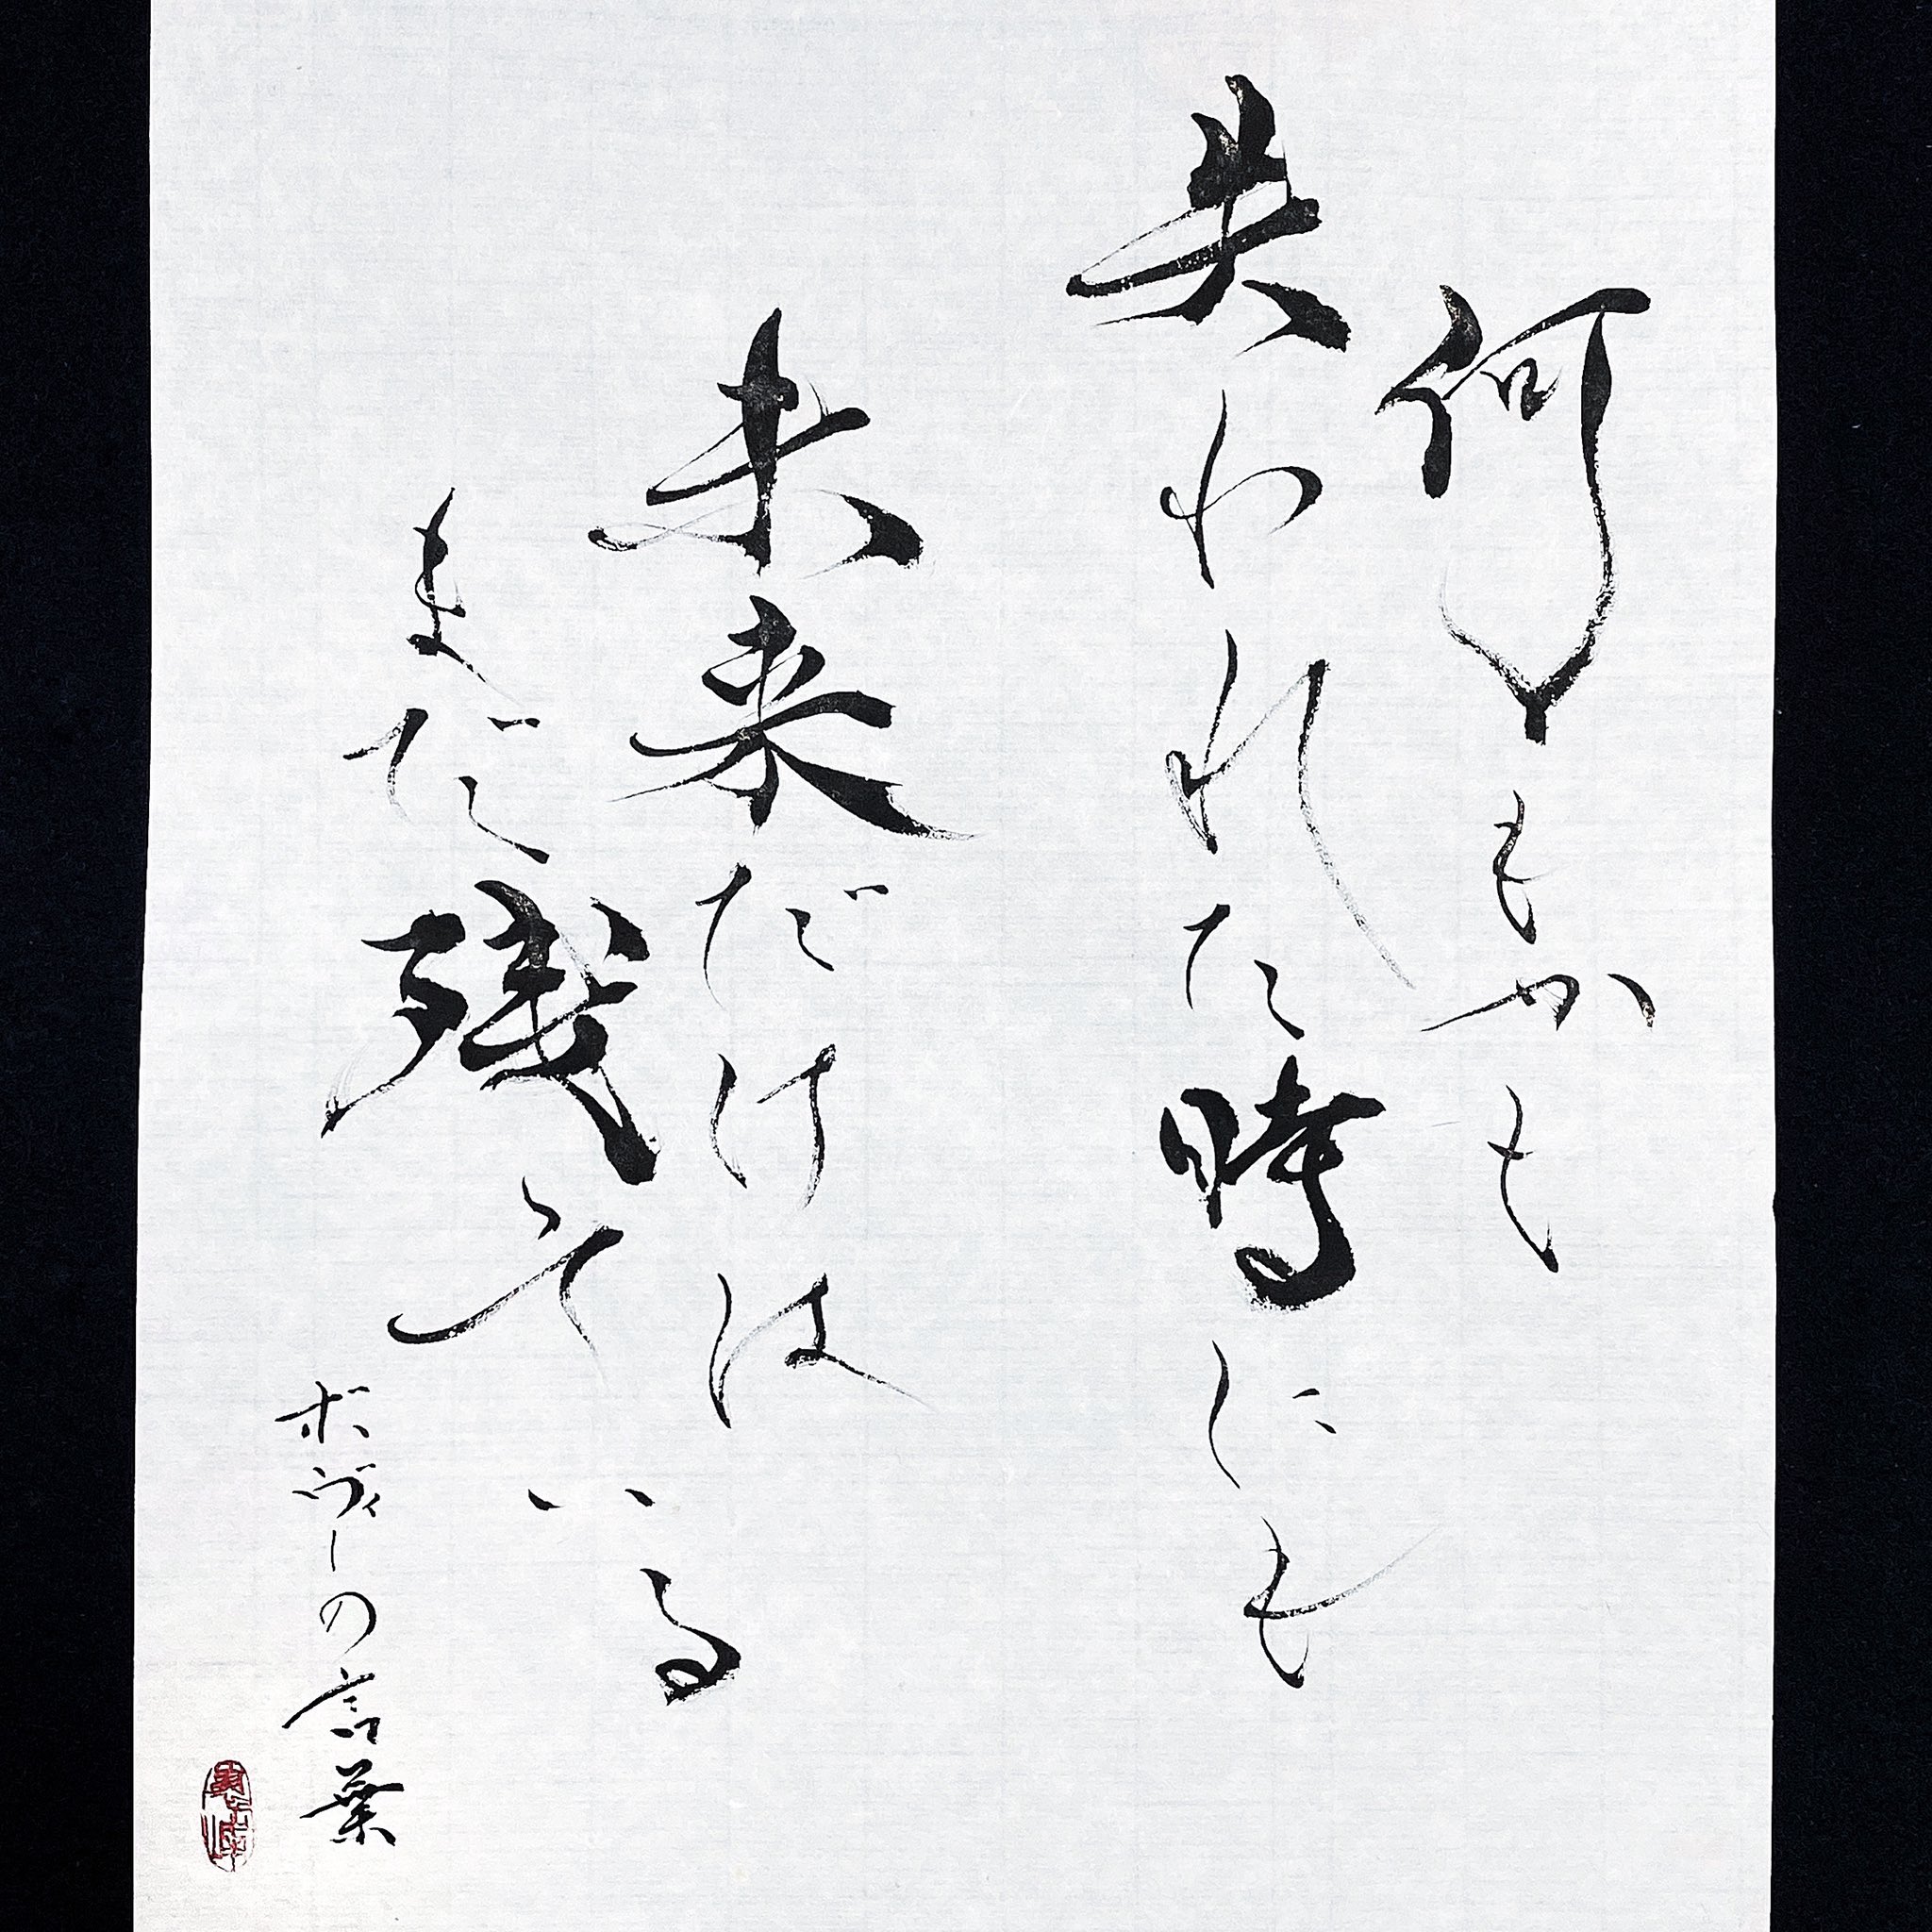 何もかも
失われた時にも
未来だけは
まだ残っている
ボヴィーの言葉